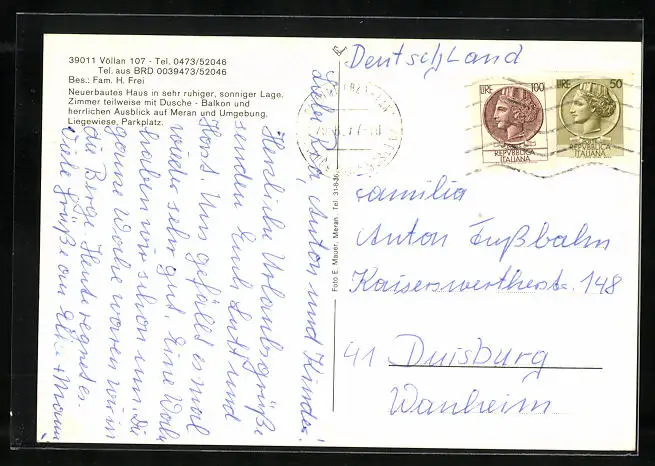 39011 Völlan 107 - Tel. 0473/52046
Tel. aus BRD 0039473/52046
Bes.: Fam. H. Frei
Neuerbautes Haus in sehr ruhiger, sonniger Lage.
Zimmer teilweise mit Dusche - Balkon und
herrlichen Ausblick auf Meran und Umgebung.
Liegewiese, Parkplatz.
Anton und Kinder!
Herzliche Urlaubsgrüße
senden Euch Lutt und
Horst. Uns gefällt es mal
wieder sehr gut. Eine Woche
haben wir schon um. Die
ganze Woche waren wir in
die Berge. Heute regnet es.
Viele Grüße an
Foto E. Mauer, Meran, Tel. 31-8-36
Deutschland
LIRE 100
REPVBBLICA
ITALIANA
LIRE 50
REPVBBLICA
ITALIANA
Familia
Anton Fußbahn
Kaiserswertherstr. 148
41 Duisburg
Wanheim